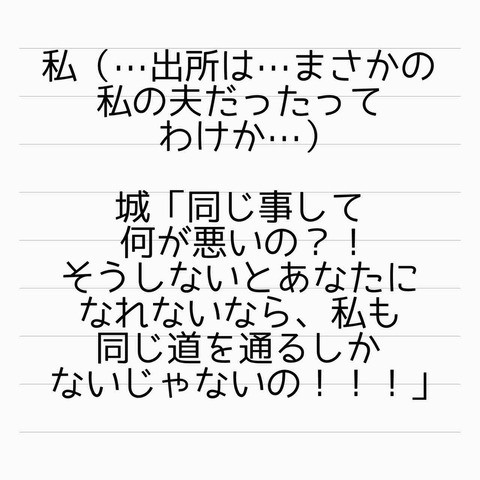 私（…出所は…まさかの
私の夫だったって
わけか…）
城「同じ事して
何が悪いの？！
そうしないとあなたに
なれないなら、私も
同じ道を通るしか
ないじゃないの！！！」